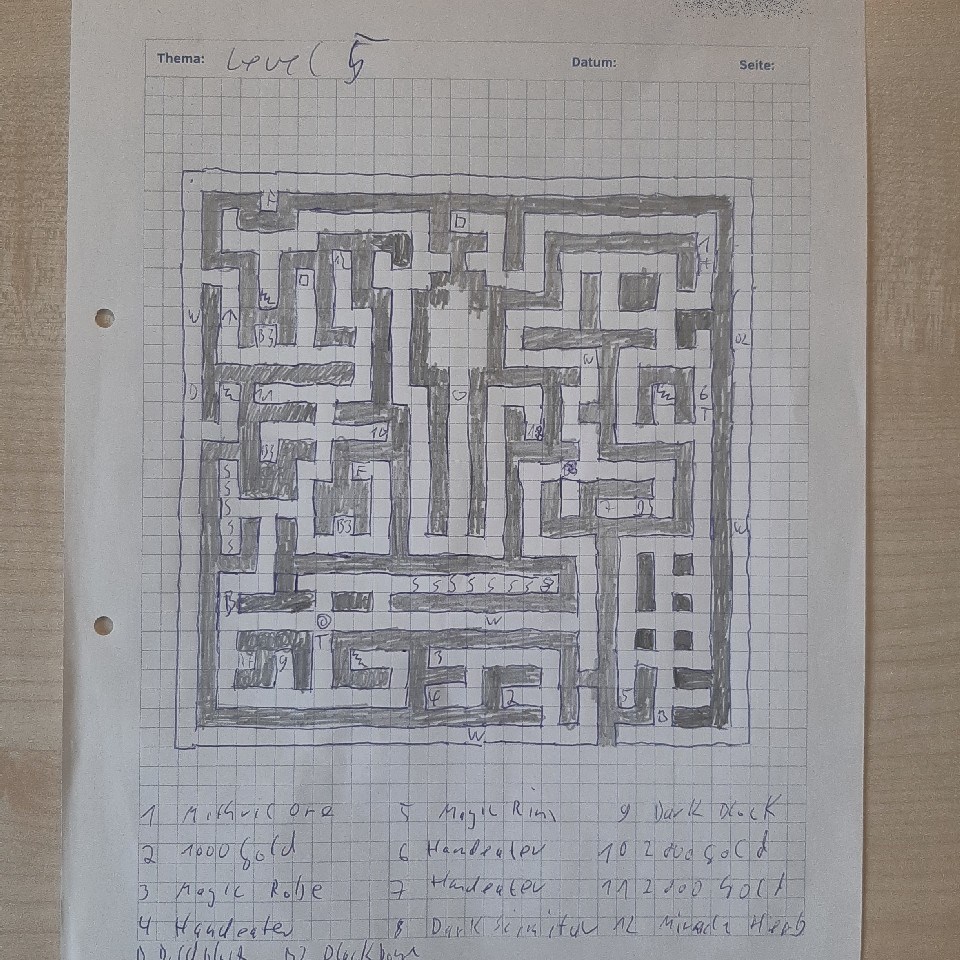 Thema: Level 5 Datum: Seite:
F
D
12
1
D
W
B3
W
W
D
11
6
G
T
10
B3
F
S
S
7
S
B3
W
S
S
S S S S S S S 8
B
W
T
9
3
4
2
5
B
W
1 Mithril Ore 5 Magic Ring 9 Dark Block
2 1000 Gold 6 Handeater 10 2000 Gold
3 Magic Robe 7 Handeater 11 2000 Gold
4 Handeater 8 Dark Scimitar 12 Miracle Herb